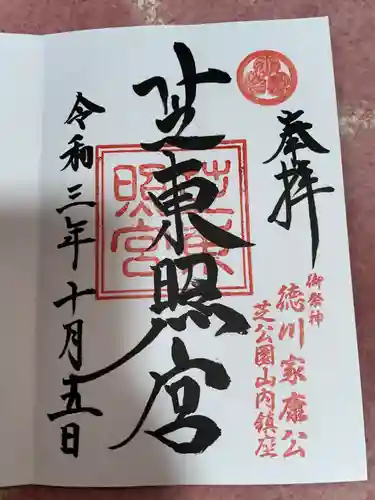 奉拝
御祭神
徳川家康公
芝公園山内鎮座
芝東照宮
芝東照宮
令和三年十月五日